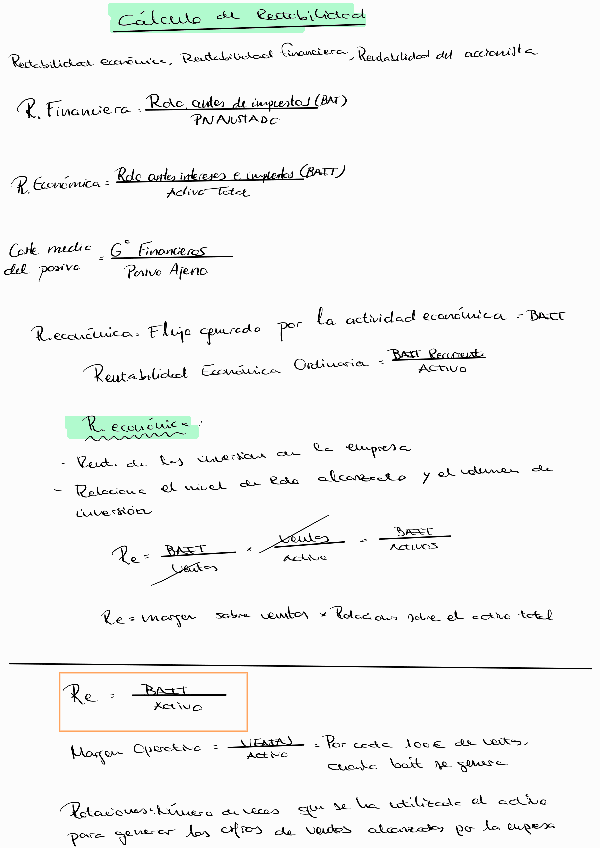 Cálculo de Rentabilidad
Rentabilidad económica, Rentabilidad Financiera, Rentabilidad del accionista
R. Financiera = Rdo. antes de impuestos (BAT)
PN AJUSTADO
R. Económica = Rdo antes intereses e impuestos (BAIT)
Activo Total
Coste medio del pasivo = Gº Financieros
Pasivo Ajeno
R. económica. Flujo generado por la actividad económica = BAIT
Rentabilidad Económica Ordinaria = BAIT Recurrente
ACTIVO
R. económica:
- Rent. de las inversion en la empresa
- Relaciona el nivel de Rdo alcanzado y el volumen de
inversión
Re = BAIT / Ventas × Ventas / Activo = BAIT / Activos
Re = margen sobre ventas × Rotaciones sobre el activo total
Re = BAIT
Activo
Margen Operativo = VENTAS / Activo = Por cada 100€ de ventas,
cuanto bait se genera
Rotaciones: Número de veces que se ha utilizado el activo
para generar las cifras de ventas alcanzadas por la empresa